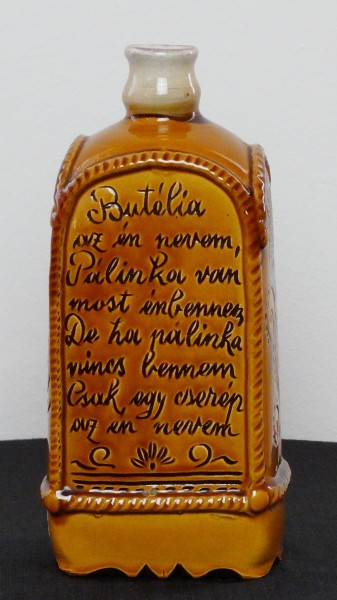 Butélia
az én nevem,
Pálinka van
most énbennem
De ha pálinka
nincs bennem
Csak egy cserép
az én nevem